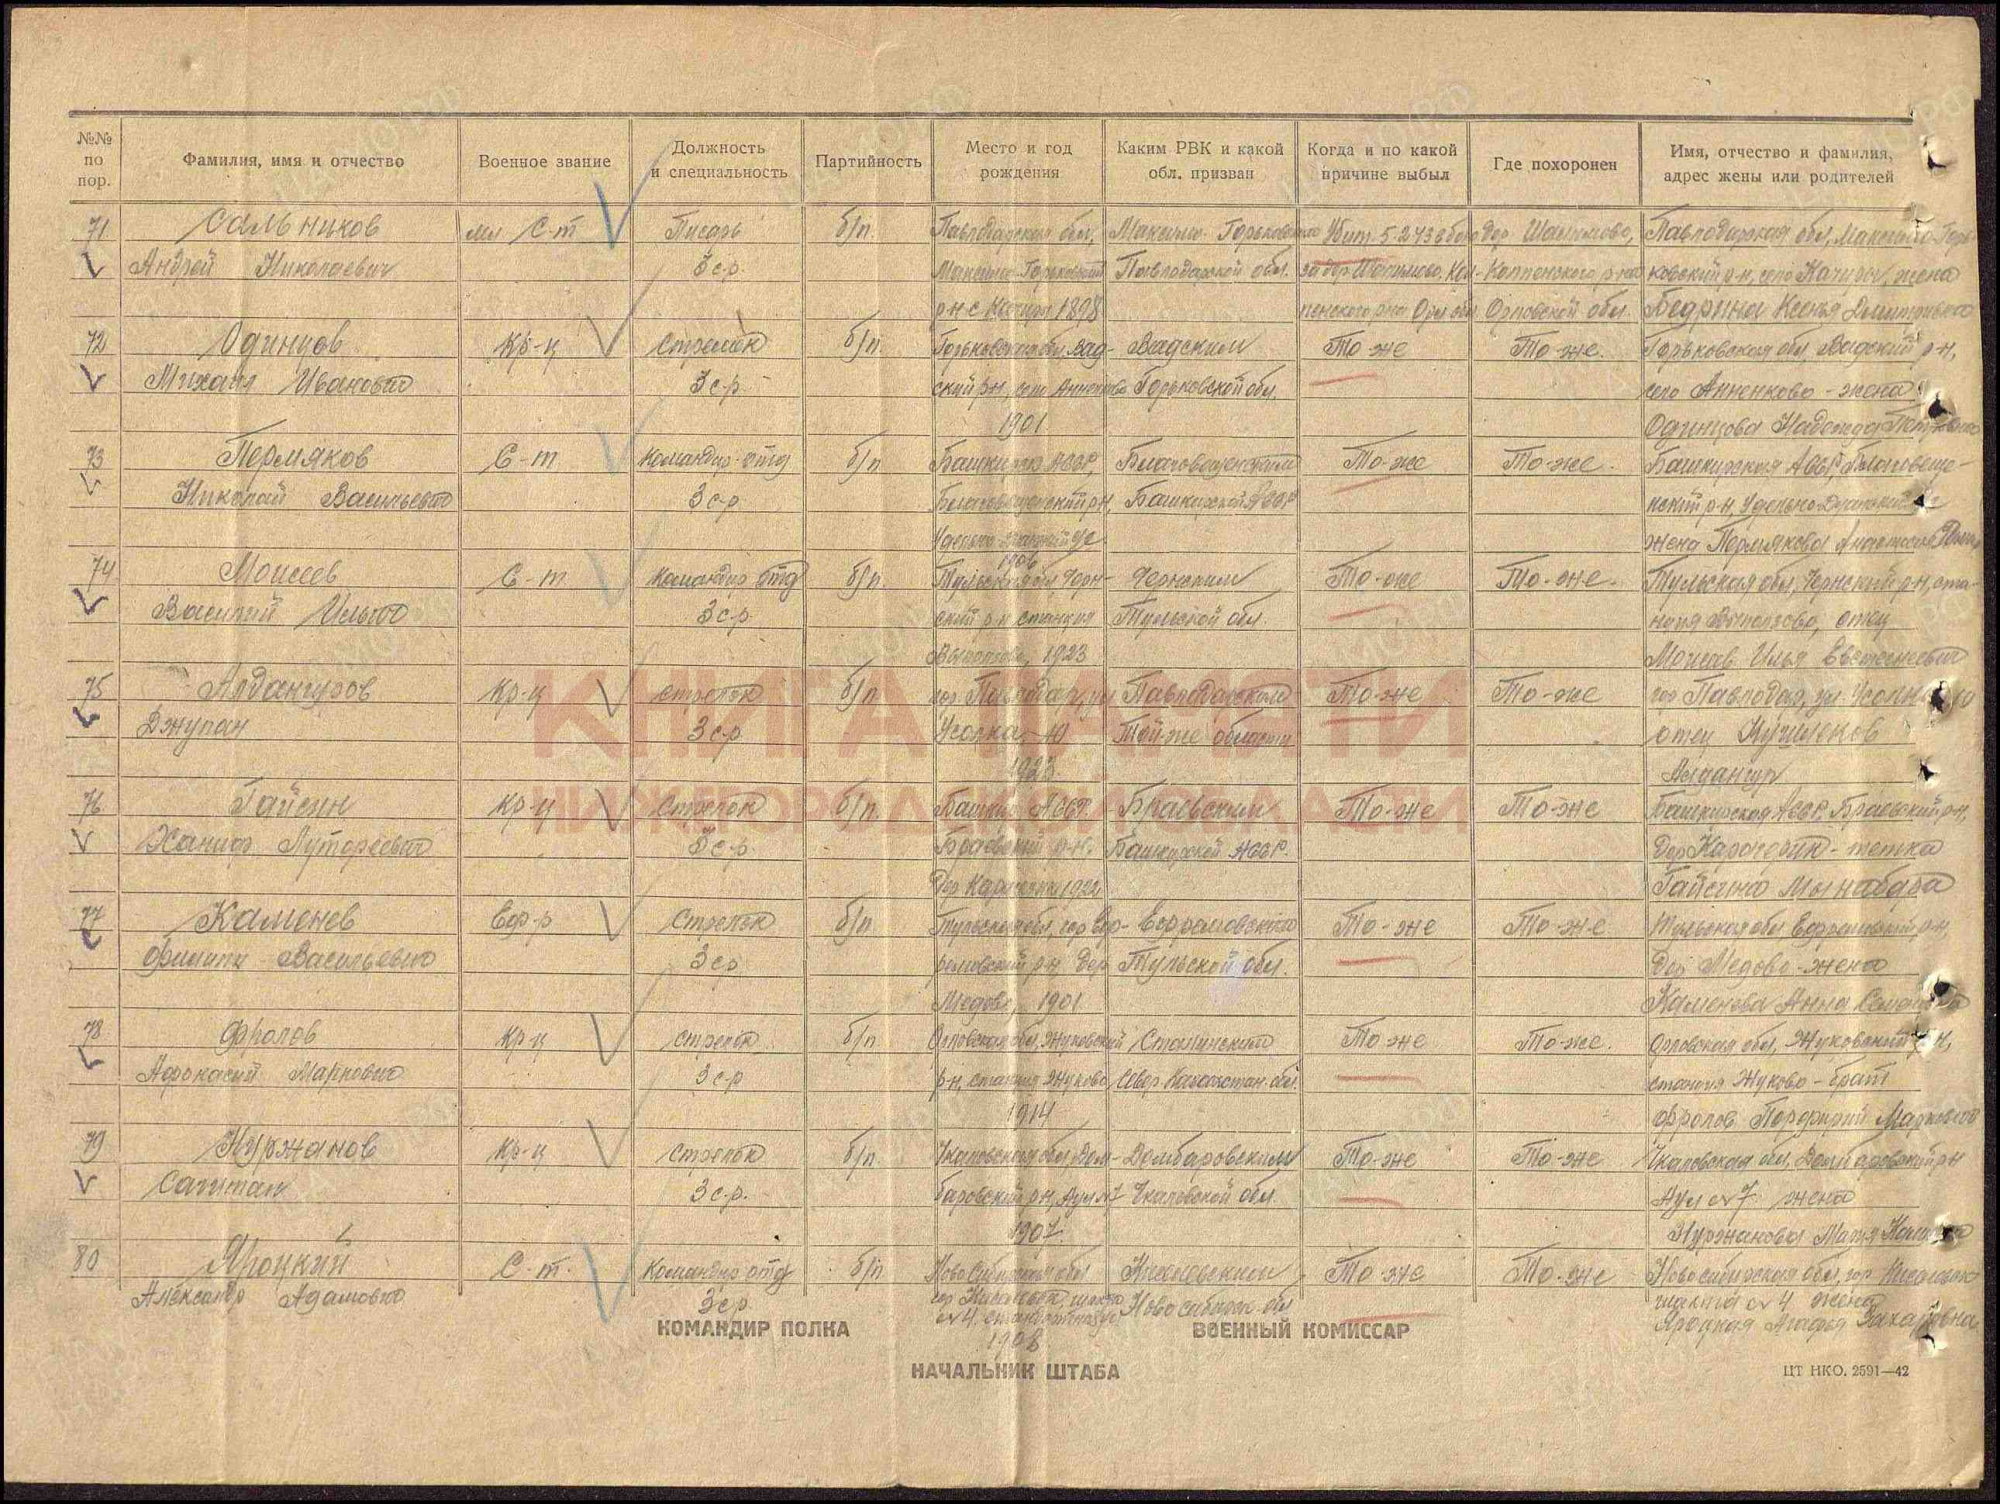 №№ по пор.
Фамилия, имя и отчество
Военное звание
Должность и специальность
Партийность
Место и год рождения
Каким РВК и какой обл. призван
Когда и по какой причине выбыл
Где похоронен
Имя, отчество и фамилия, адрес жены или родителей
71 Сальников мл С-т Писарь б/п. Павлодарская обл, Максимо Горьковским Убит 5-2-43 в бою дер Шатилово, Павлодарская обл, Максимо-Горь-
Андрей Николаевич 3 с-р. Максимо-Горьковский Павлодарской обл. за дер. Шатилово, Кол- Колпенского р-на ковский р-н, село Качиры, жена
р-н с. Качиры 1898 пенского р-на Орл обл Орловской обл. Ксенья Дмитриевна
72 Одинцов Кр-ц Стрелок б/п. Горьковская обл. Вад- Вадским То-же То-же. Горьковская обл. Вадский р-н,
Михаил Иванович 3 с-р. ский р-н, село Анненково Горьковской обл. село Анненково - жена
1901 Одинцова Надежда Петровна
73 Пермяков С-т Командир отд б/п Башкирск АССР, Благовещенским То-же То-же. Башкирская АССР, Благовеще-
Николай Васильевич 3 с-р Благовещенский р-н, Башкирской АССР нский р-н, Удельно-
жена Пермякова Анастасия
1906
74 Моисеев С-т. Командир отд б/п. Тульская обл Черн- Чернским То-же То-же. Тульская обл, Чернский р-н, ста-
Василий Ильич 3 с-р. ский р-н станция Тульской обл. отец
1923 Илья
75 Алдангуров Кр-ц Стрелок б/п. гор Павлодар, ул Павлодарским То-же То-же гор Павлодар, ул Усолка
Джупан 3 с-р Усолка - 10 Той-же области отец
1923 Алдангур
76 Гайсин Кр-ц Стрелок б/п. Башкир АССР. Бураевским То-же То-же Башкирская АССР, Бураевский р-н,
Ханиф 3 с-р. Бураевский р-н. Башкирской АССР. дер - тетка
1922 Гайсина
77 Каменев Ефр-р Стрелок б/п Тульская обл, гор Еф- Ефремовским То-же То-же Тульская обл Ефремовский р-н,
Филипп Васильевич 3 с-р ремовский р-н дер Тульской обл. дер Медово - жена
Медово, 1901 Каменева Анна
78 Фролов Кр-ц Стрелок б/п Орловская обл, Жуковский Сталинским То-же То-же. Орловская обл, Жуковский р-н,
Афонасий Маркович 3 с-р р-н, станция Жуково Север-Казахстан. обл. станция Жуково - брат
1914 Фролов Порфирий Маркович
79 Нуржанов Кр-ц Стрелок б/п. Чкаловская обл, Дом- Домбаровским То-же То-же Чкаловская обл, Домбаровский р-н
3 с-р. баровский р-н, Аул Чкаловской обл. Аул № 7 жена
Нуржанова
80 Яроцкий С-т. Командир отд б/п Новосибирская обл Киселевским То-же То-же Новосибирская обл, гор Киселевск
Александр Адамович 3 с-р. гор Киселевск, шахта Новосибирск обл шахта № 4 жена
№ 4. Яроцкая Агафья Захаровна
1908
КОМАНДИР ПОЛКА
ВОЕННЫЙ КОМИССАР
НАЧАЛЬНИК ШТАБА
ЦТ НКО. 2591—42
КНИГА ПАМЯТИ
НИЖЕГОРОДСКОЙ ОБЛАСТИ